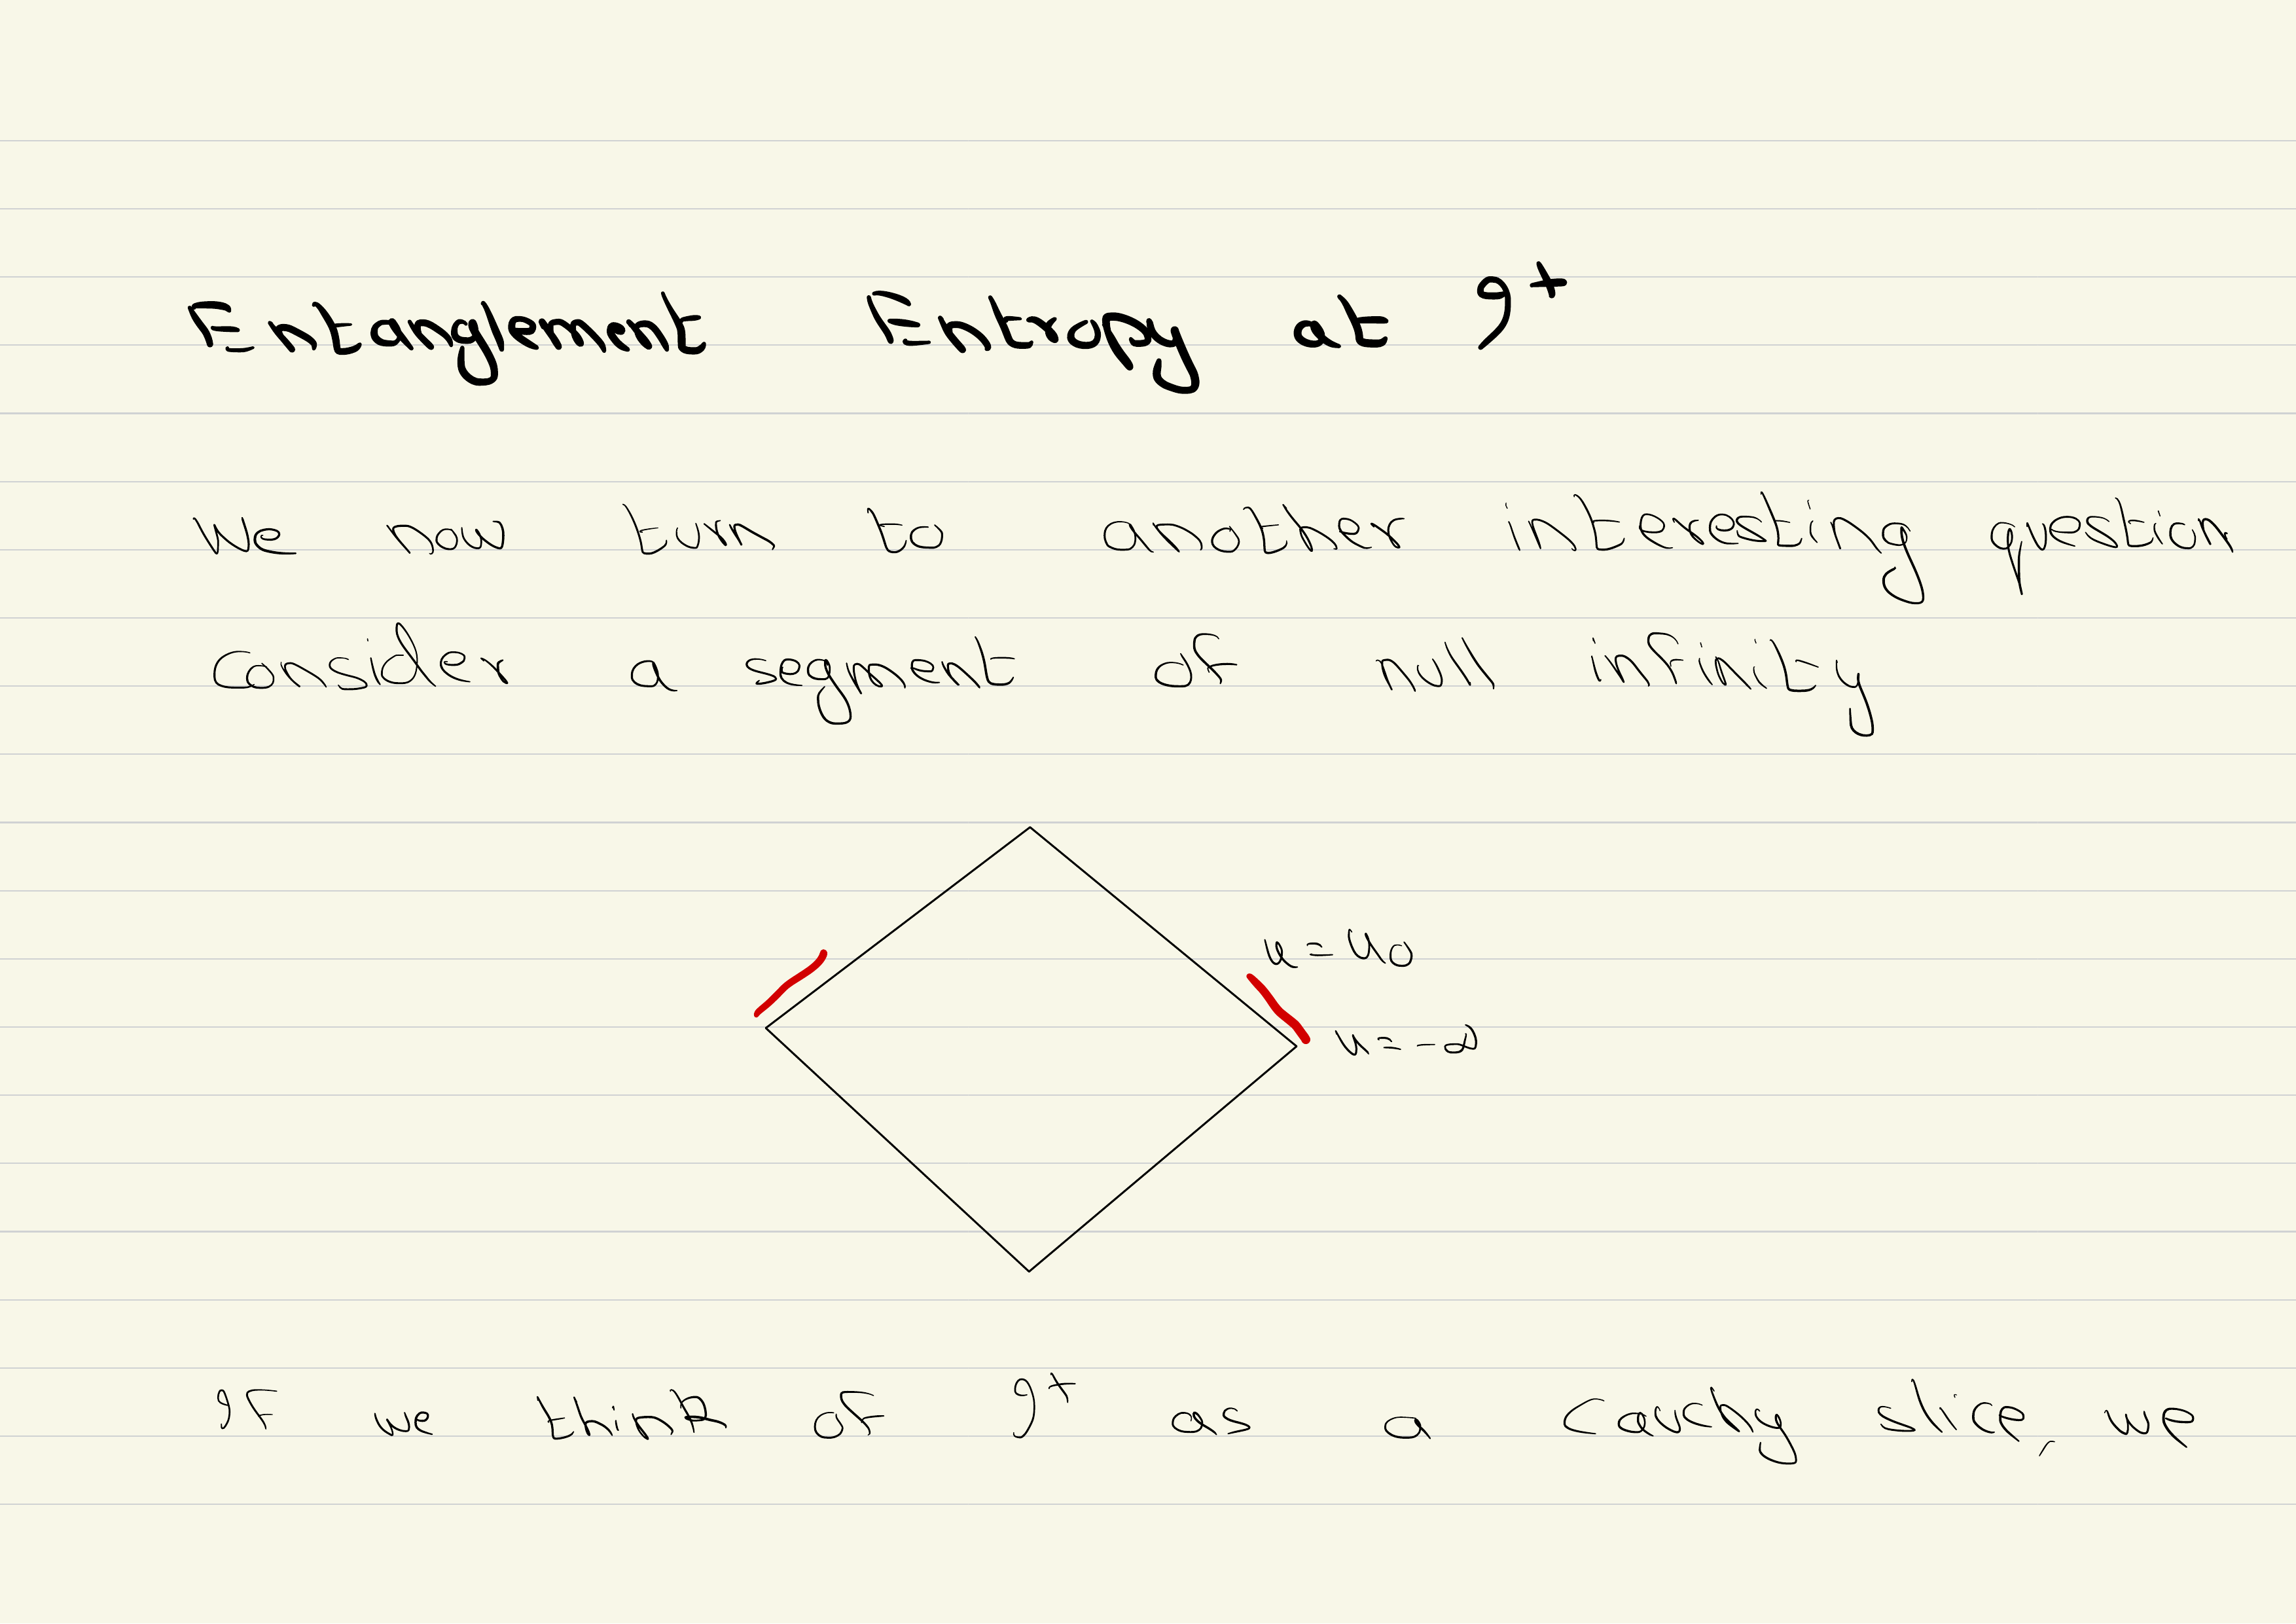 Entanglement Entropy at 𝓘⁺
We now turn to another interesting question
Consider a segment of null infinity
u = u₀
u = -∞
If we think of 𝓘⁺ as a Cauchy slice, we